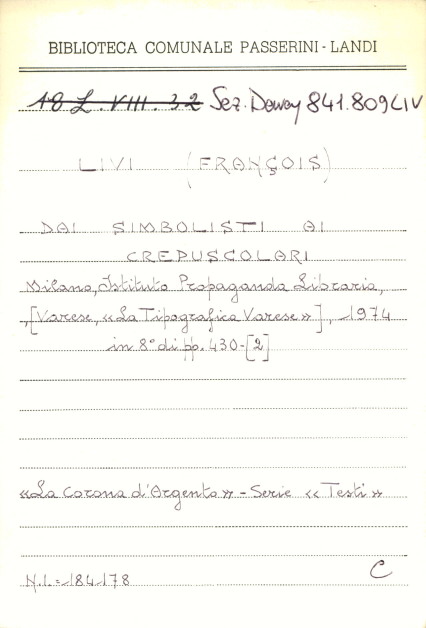 BIBLIOTECA COMUNALE PASSERINI - LANDI
18 L. VIII. 32 Sez. Dewey 841.809 LIV
LIVI (FRANÇOIS)
DAI SIMBOLISTI AI
CREPUSCOLARI
Milano, Istituto Propaganda Libraria,
[Varese, «La Tipografica Varese»], 1974
in 8° di pp. 430-[2]
«La Corona d'Argento» - Serie «Testi»
N.I. = 184178
C